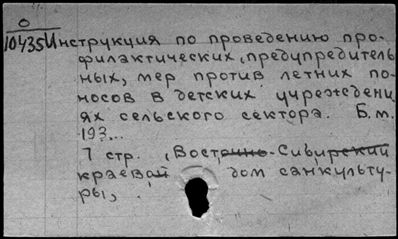 О
10435 Инструкция по проведению про-
филактических, предупредитель
ных, мер против летних по-
носов в детских учрежден и
ях сельского сектора. Б.м.
193...
7 стр. (Восточно-Сибирский
краевой дом санкульту-
ры,